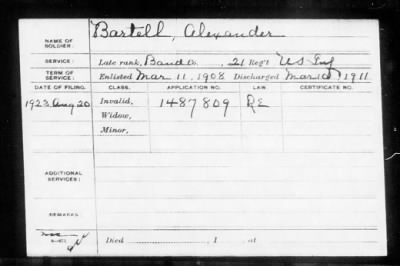 NAME OF SOLDIER: Bartell, Alexander
SERVICE: Late rank, Band Co. , 21 Reg't US Inf
TERM OF SERVICE: Enlisted Mar 11, 1908 Discharged Mar 10, 1911
DATE OF FILING. CLASS. APPLICATION NO. LAW. CERTIFICATE NO.
1923 Aug 20 Invalid, 1487809
Widow,
Minor,
ADDITIONAL SERVICES:
REMARKS:
Died , 1 , at